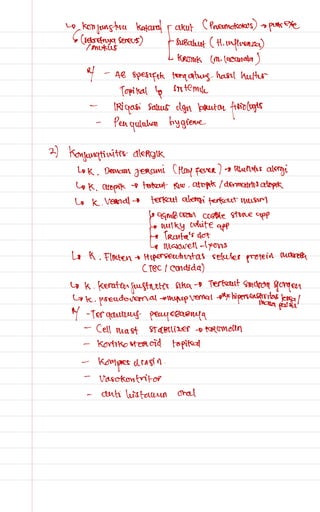 ↳ Konjungtiva Kataral akut (Pneumokokus) → pure exe
(sekretnya serous) / mukus
subakut (H. influenza)
kronik (m. lacunata)
R/ - AB spesifik tergantung hasil kultur
Topikal Sistemik
- Irigasi Salus dgn larutan fisiologis
- Pengulalan hygiene
2) Konjungtivitis alergik
↳ K. Demam jerami (Hay fever) → rhinitis alergi
↳ K. atopik → terkait atopik / dermatitis atopik
↳ K. Vernal → terkait alergi terkait musim
↳ cobble stone app
↳ milky white app
↳ Tranta's dot
↳ maxwell-lyons
↳ K. Flikten → Hipersensitivitas seluler protein
(TBC / candida)
↳ K. keratokonjungtivitis sika → Terkait Sindrom Sjorgen
↳ K. pseudovernal → mirip vernal hipersensitivitas
R/ - Tergantung penyebabnya
- Cell mast stabilizer → kromolin
- Kortikosteroid topikal
- Kompres dingin
- Vasokontriktor
- anti histamin oral